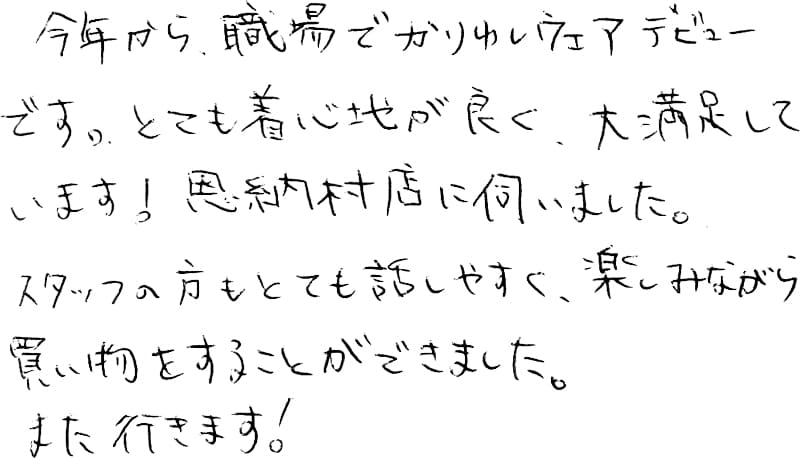 今年から、職場でかりゆしウェアデビュー
です。とても着心地が良く、大満足して
います！恩納村店に伺いました。
スタッフの方もとても話しやすく、楽しみながら
買い物をすることができました。
また行きます！